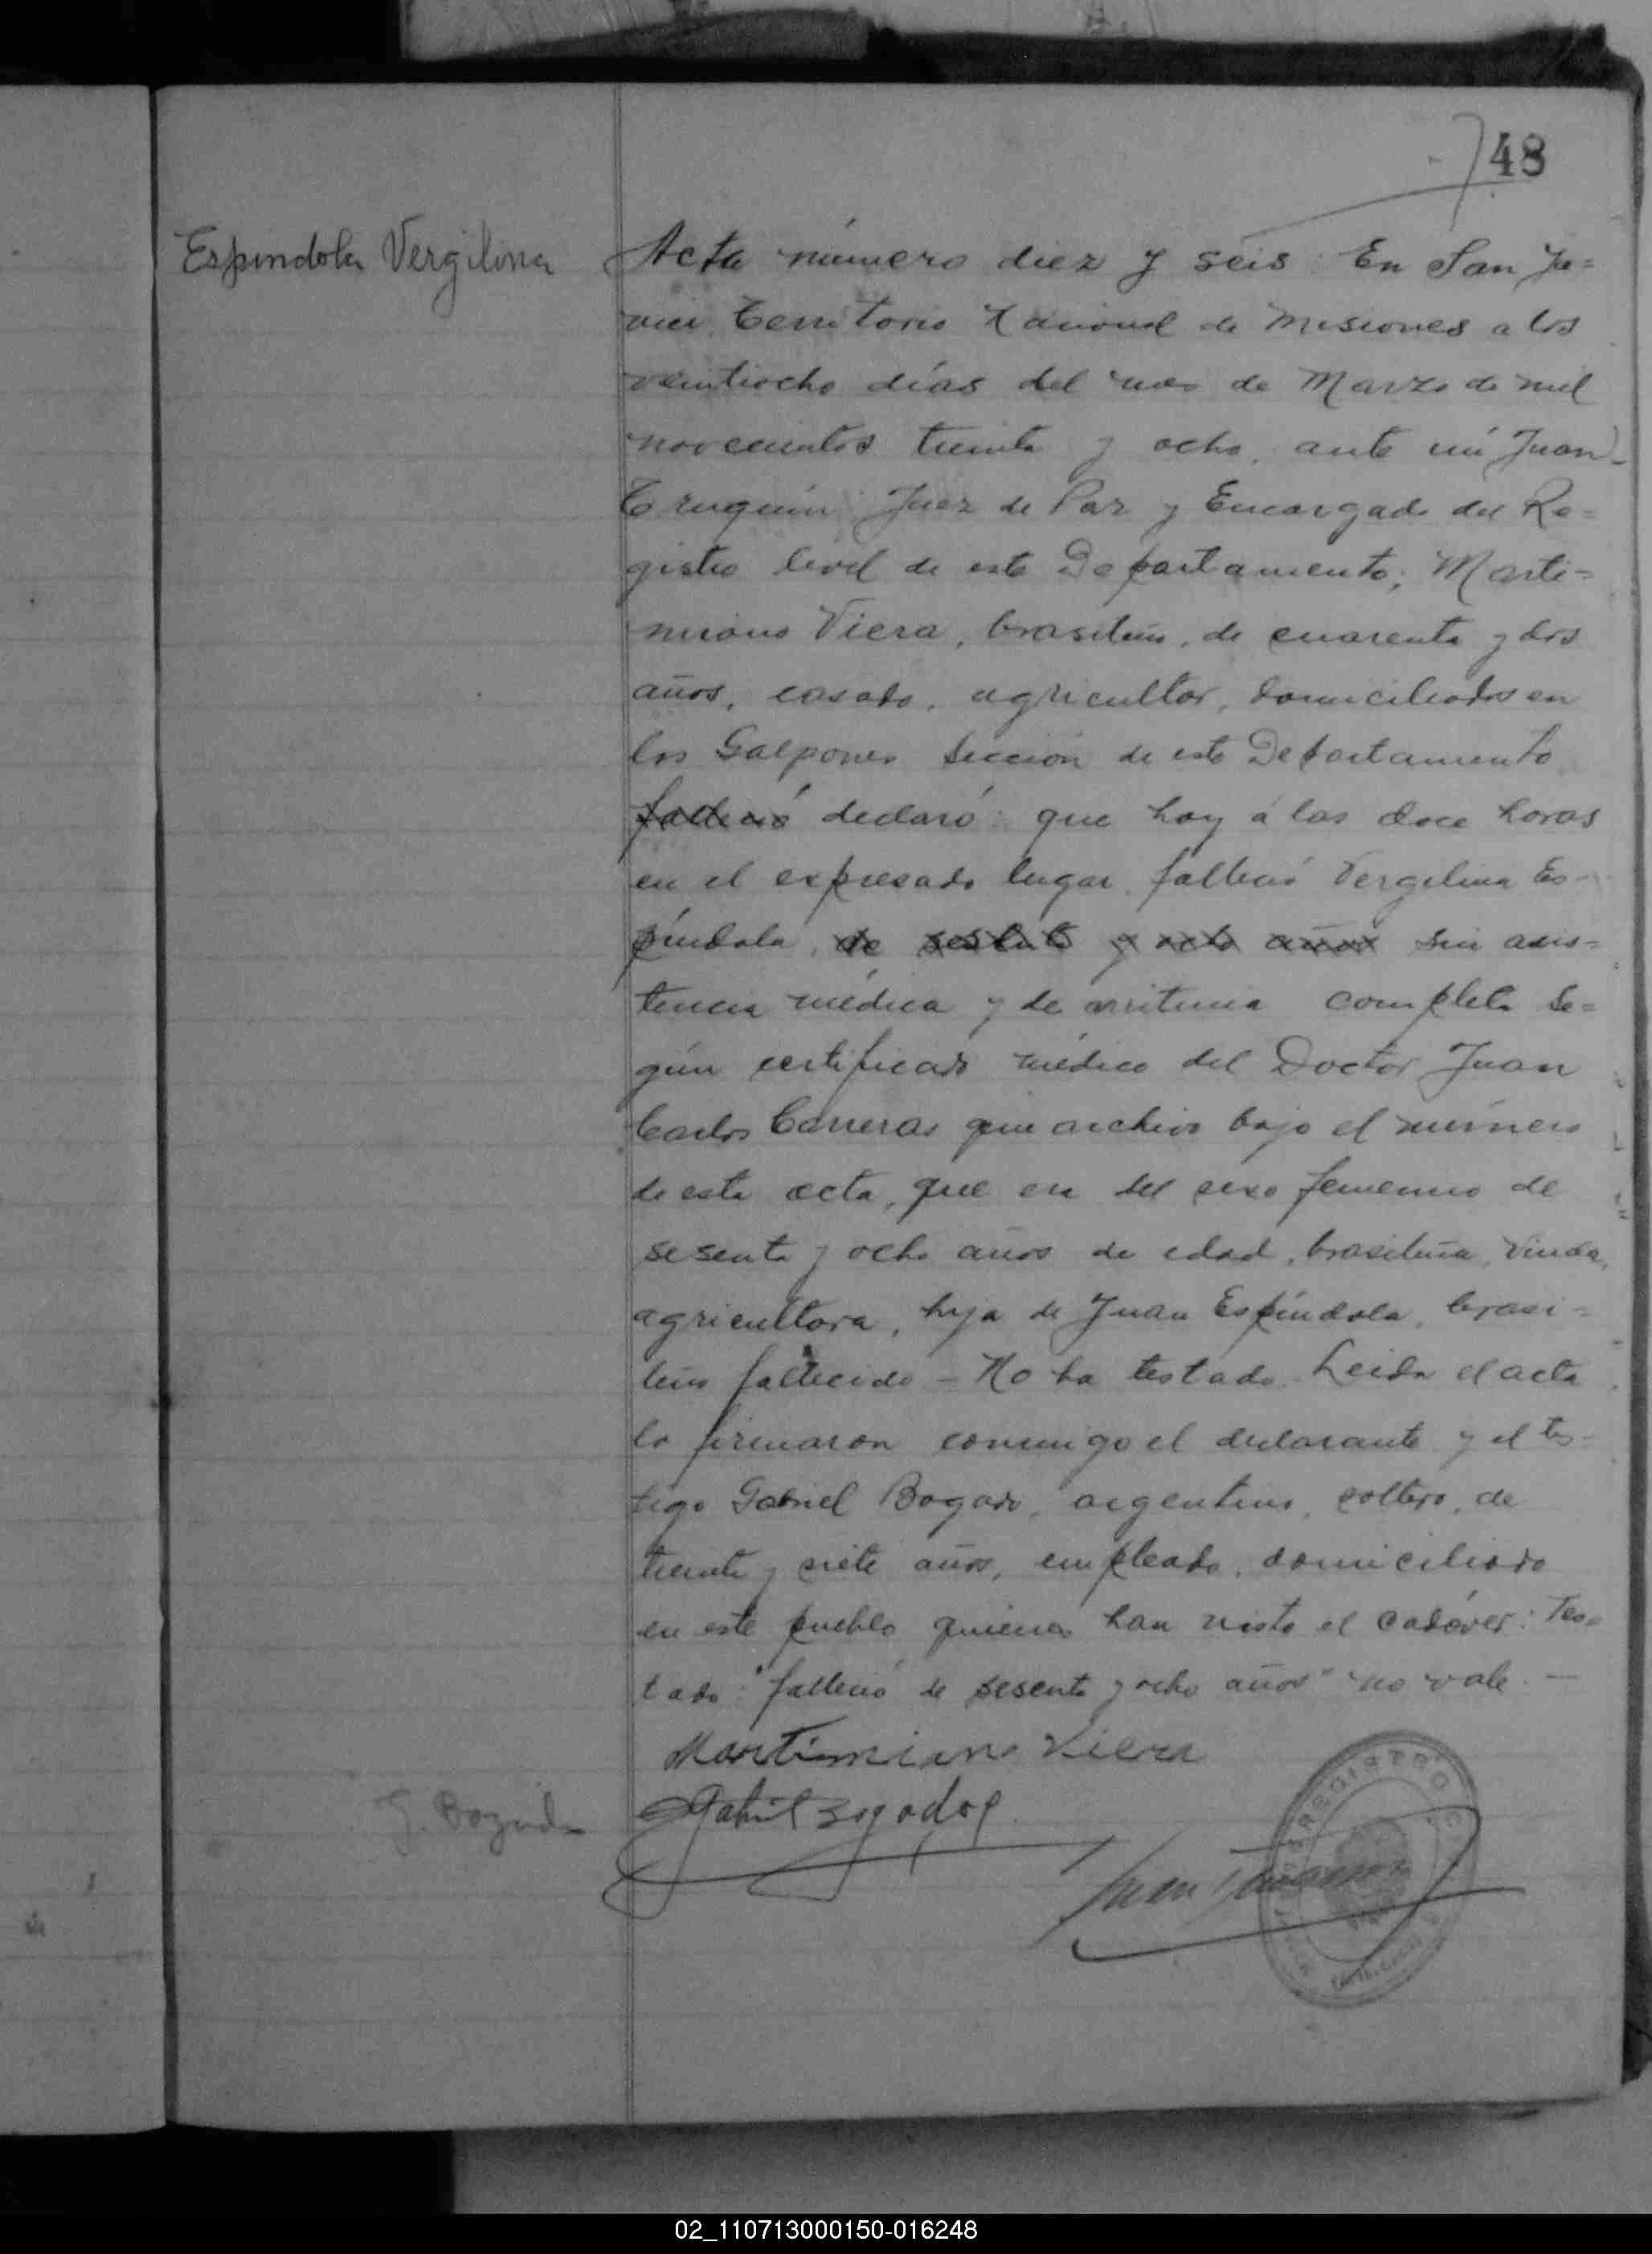 48
Espindola Vergilina
Acta número diez y seis: En San Ja=
vier, Territorio Nacional de Misiones a los
veintiocho días del mes de Marzo de mil
novecientos treinta y ocho, ante mí Juan
Juez de Paz y Encargado del Re=
gistro Civil de este Departamento; Marti=
miano Viera, brasileño, de cuarenta y dos
años, casado, agricultor, domiciliado en
los Galpones sección de este Departamento
falleció declaró: que hoy á las doce horas
en el expresado lugar, falleció Vergilina Es-
píndola, de sesenta y ocho años sin asis=
tencia médica y de completa se=
gún certificado médico del Doctor Juan
Carlos Carreras que archivo bajo el número
de esta acta, que era del sexo femenino de
sesenta y ocho años de edad, brasileña, viuda,
agricultora, hija de Juan Espíndola, brasi=
leño fallecido - No ha testado. Leida el acta
la firmaron conmigo el declarante y el tes-
tigo Gabriel Bogado, argentino, soltero, de
treinta y siete años, empleado, domiciliado
en este pueblo quienes han visto el cadáver: Tes=
tado: "falleció de sesenta y ocho años" no vale. —
Martimiano Viera
G. Bogado
Gabriel Bogado
Juan
REGISTRO
02_110713000150-016248